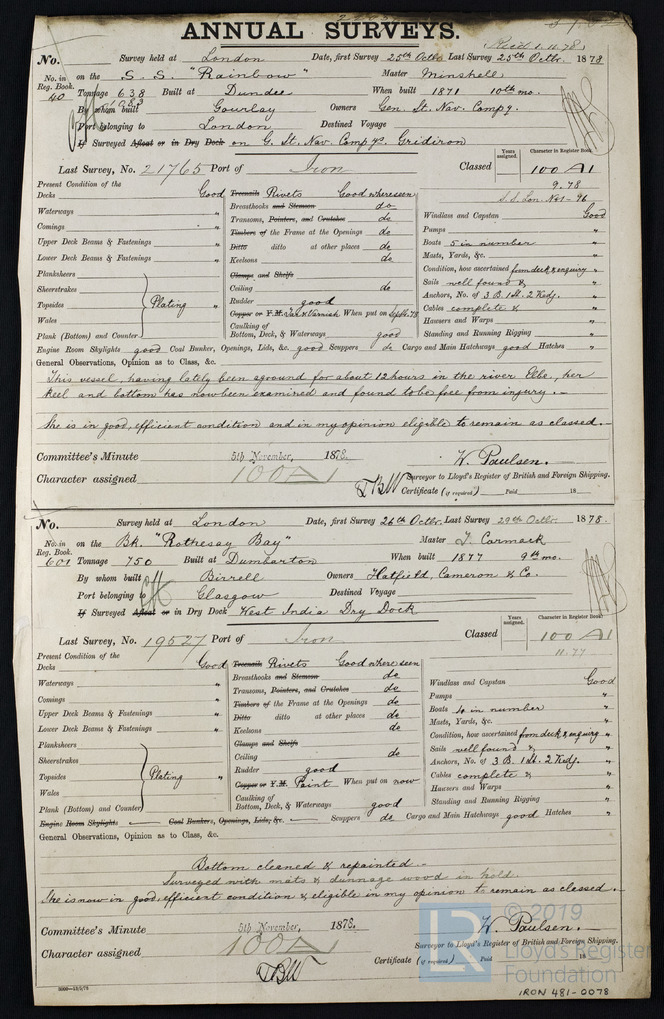 ANNUAL SURVEYS.
Recd 1.11.78
No. Survey held at London Date, first Survey 25th Octbr. Last Survey 25th Octbr. 1878
No. in Reg. Book. 40 on the S. S. "Rainbow" Master Minshell
Tonnage 638 Built at Dundee When built 1871 10th mo.
By whom built Gourlay Owners Gen. St. Nav. Compy.
Port belonging to London Destined Voyage
If Surveyed Afloat or in Dry Dock on G. St. Nav. Compys. Gridiron
Last Survey, No. 21765 Port of Iron Classed Years assigned. Character in Register Book. 100 A1
9.78
Present Condition of the
Decks Good Treenails Rivets Good where seen
Waterways " Breasthooks and Stemson do Windlass and Capstan Good
Comings " Transoms, Pointers, and Crutches do Pumps "
Upper Deck Beams & Fastenings " Timbers of the Frame at the Openings do Boats 5 in number "
Lower Deck Beams & Fastenings " Ditto ditto at other places do Masts, Yards, &c. "
Keelsons do Condition, how ascertained from deck & enquiry "
Planksheers Clamps and Shelfs Sails well found & "
Sheerstrakes Ceiling do Anchors, No. of 3 B. 1 St. 2 Kedg. "
Topsides Plating " Rudder good Cables complete & "
Wales Copper or Y.M. When put on Hawsers and Warps "
Plank (Bottom) and Counter Caulking of Bottom, Deck, & Waterways good Standing and Running Rigging "
Engine Room Skylights good Coal Bunker, Openings, Lids, &c. good Scuppers do Cargo and Main Hatchways good Hatches "
General Observations, Opinion as to Class, &c.
This vessel, having lately been aground for about 12 hours in the river Elbe, her
keel and bottom has now been examined and found to be free from injury.
She is in good, efficient condition and in my opinion eligible to remain as classed.
Committee's Minute 5th November, 1878. W. Paulsen.
Character assigned 100 A1 Surveyor to Lloyd's Register of British and Foreign Shipping.
Certificate (if required) Paid 18
No. Survey held at London Date, first Survey 26th Octbr. Last Survey 29th Octbr. 1878.
No. in Reg. Book. 601 on the Bk. "Rothesay Bay" Master T. Cormack
Tonnage 750 Built at Dumbarton When built 1877 9th mo.
By whom built Birrell Owners Hatfield, Cameron & Co.
Port belonging to Glasgow Destined Voyage
If Surveyed Afloat or in Dry Dock West India Dry Dock
Last Survey, No. 19527 Port of Iron Classed Years assigned. Character in Register Book. 100 A1
11.77
Present Condition of the
Decks Good Treenails Rivets Good where seen
Waterways " Breasthooks and Stemson do Windlass and Capstan Good
Comings " Transoms, Pointers, and Crutches do Pumps "
Upper Deck Beams & Fastenings " Timbers of the Frame at the Openings do Boats 4 in number "
Lower Deck Beams & Fastenings " Ditto ditto at other places do Masts, Yards, &c. "
Keelsons do Condition, how ascertained from deck & enquiry "
Planksheers Clamps and Shelfs Sails well found & "
Sheerstrakes Ceiling do Anchors, No. of 3 B. 1 St. 2 Kedg. "
Topsides Plating " Rudder good Cables complete & "
Wales Copper or Y.M. Paint When put on now Hawsers and Warps "
Plank (Bottom) and Counter Caulking of Bottom, Deck, & Waterways good Standing and Running Rigging "
Engine Room Skylights Coal Bunkers, Openings, Lids, &c. Scuppers do Cargo and Main Hatchways good Hatches "
General Observations, Opinion as to Class, &c.
Bottom cleaned & repainted.
Surveyed with mats & dunnage wood in hold.
She is now in good, efficient condition & eligible in my opinion to remain as classed.
Committee's Minute 5th November, 1878. W. Paulsen.
Character assigned 100 A1 Surveyor to Lloyd's Register of British and Foreign Shipping.
Certificate (if required) Paid 18
© 2019
LR Lloyd's Register
Foundation
IRON 481-0078